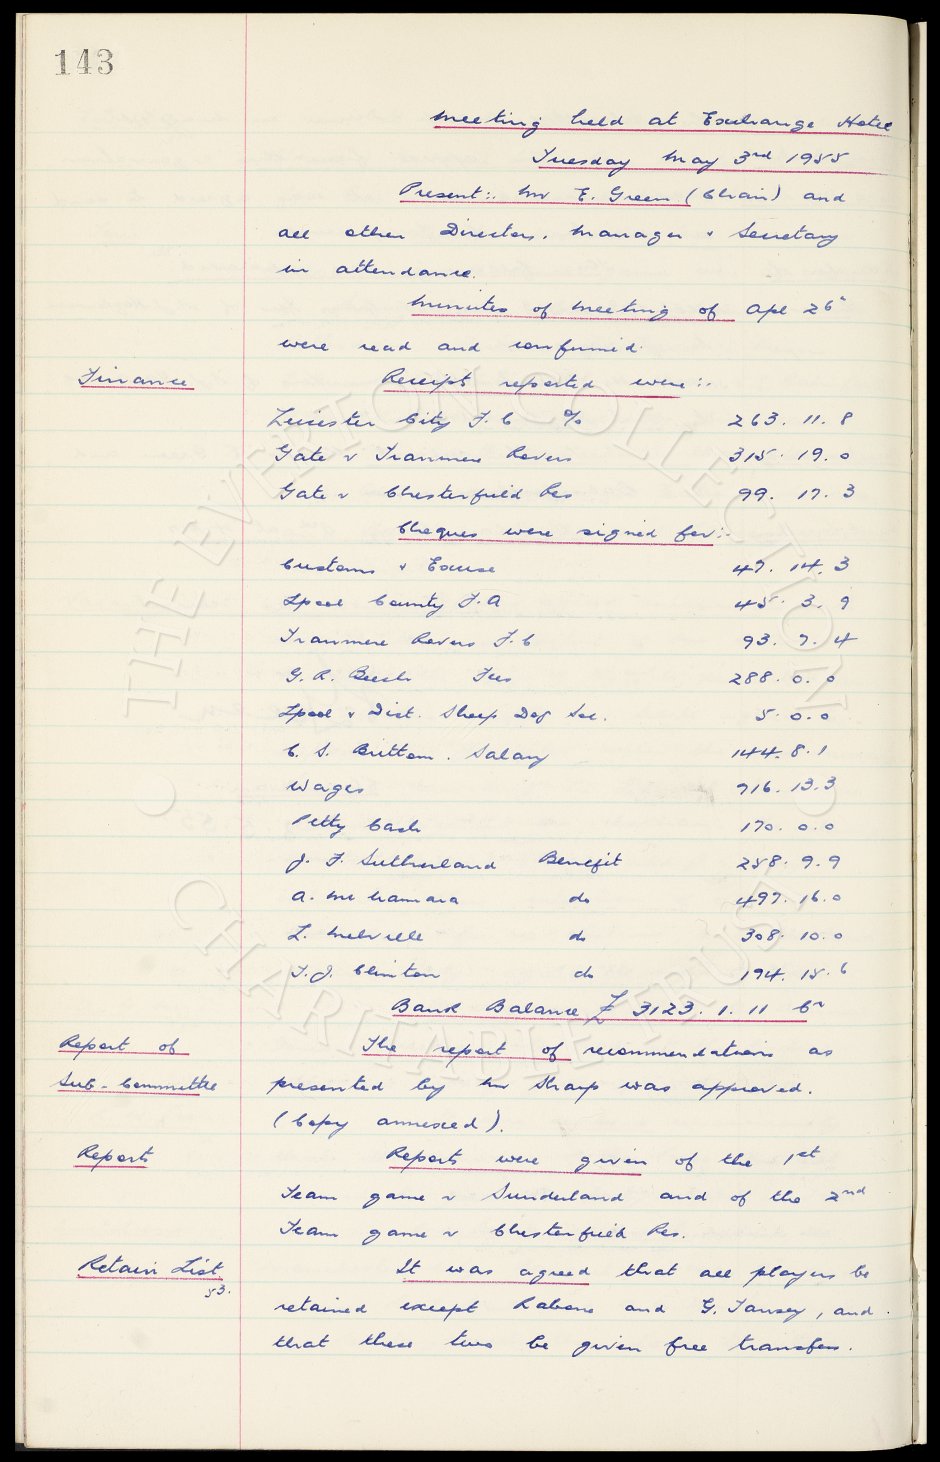 143
Meeting held at Exchange Hotel
Tuesday May 3rd 1955
Present:. Mr E. Green (Chair) and
all other Directors. Manager & Secretary
in attendance.
Minutes of Meeting of Apl 26"
were read and confirmed.
Finance
Receipts reported were:.
Leicester City F.C %
263. 11. 8
Gate v Tranmere Rovers
315. 19. 0
Gate v Chesterfield Res
99. 17. 3
Cheques were signed for:-
Customs & Excise
47. 14. 3
Lpool County F.A
45. 3. 9
Tranmere Rovers F.C
93. 7. 4
G. R. Fees
288. 0. 0
Lpool & Dist. Sheep Dog Soc.
5. 0. 0
C. S. Britton. Salary
144. 8. 1
Wages
716. 13. 3
Petty Cash
170. 0. 0
J. F. Sutherland Benefit
258. 9. 9
A. McNamara do
497. 16. 0
L. Melville do
308. 10. 0
T.J. Clinton do
194. 15. 6
Bank Balance £ 3123. 1. 11 Cr
Report of
Sub-Committee
The report of recommendations as
presented by Mr Sharp was approved.
(Copy annexed).
Reports
Reports were given of the 1st
Team game v Sunderland and of the 2nd
Team game v Chesterfield Res.
Retain List
53.
It was agreed that all players be
retained except Rabone and G. Tansey, and
that these two be given free transfers.
THE EVERTON COLLECTION
CHARITABLE TRUST